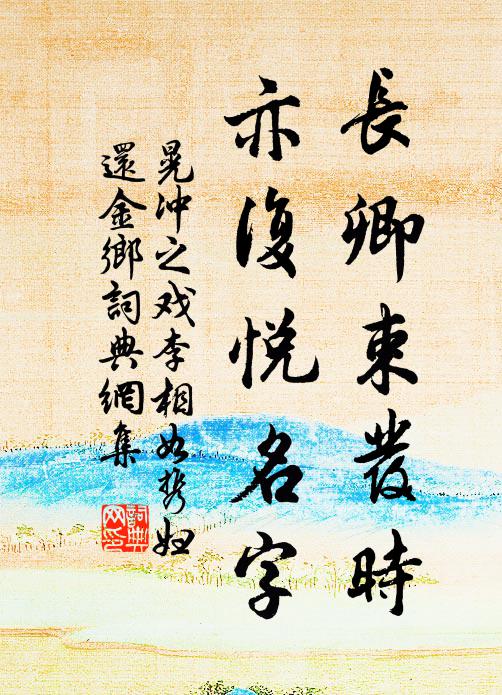 長卿束發時
亦復悅名字
晁冲之戏李相如携妇
還金鄉詞典網集